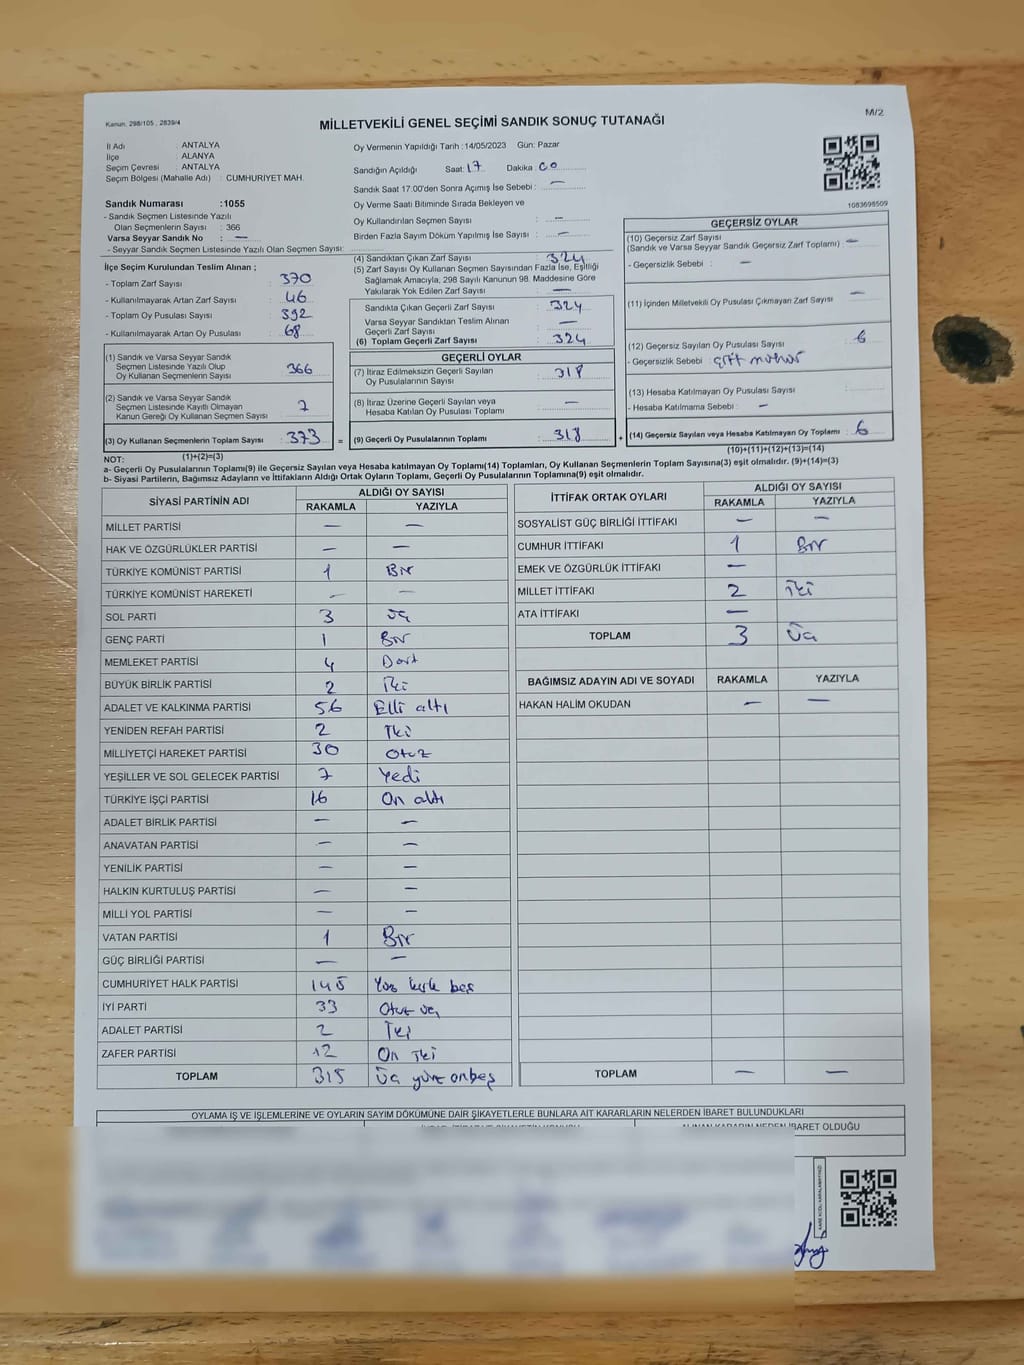 Kanun, 298/105 , 2839/4
M/2
MİLLETVEKİLİ GENEL SEÇİMİ SANDIK SONUÇ TUTANAĞI
İl Adı : ANTALYA
İlçe : ALANYA
Seçim Çevresi : ANTALYA
Seçim Bölgesi (Mahalle Adı) : CUMHURİYET MAH.
Sandık Numarası :1055
- Sandık Seçmen Listesinde Yazılı
Olan Seçmenlerin Sayısı : 366
Varsa Seyyar Sandık No : —
- Seyyar Sandık Seçmen Listesinde Yazılı Olan Seçmen Sayısı:
Oy Vermenin Yapıldığı Tarih :14/05/2023 Gün: Pazar
Sandığın Açıldığı Saat: 17 Dakika : 00
Sandık Saat 17:00'den Sonra Açımış İse Sebebi : —
Oy Verme Saati Bitiminde Sırada Bekleyen ve
Oy Kullandırılan Seçmen Sayısı : —
Birden Fazla Sayım Döküm Yapılmış İse Sayısı : —
1083698509
İlçe Seçim Kurulundan Teslim Alınan ;
- Toplam Zarf Sayısı : 370
- Kullanılmayarak Artan Zarf Sayısı : 46
- Toplam Oy Pusulası Sayısı : 392
- Kullanılmayarak Artan Oy Pusulası : 68
(1) Sandık ve Varsa Seyyar Sandık
Seçmen Listesinde Yazılı Olup
Oy Kullanan Seçmenlerin Sayısı : 366
(2) Sandık ve Varsa Seyyar Sandık
Seçmen Listesinde Kayıtlı Olmayan
Kanun Gereği Oy Kullanan Seçmen Sayısı : 7
(3) Oy Kullanan Seçmenlerin Toplam Sayısı : 373 =
(1)+(2)=(3)
(4) Sandıktan Çıkan Zarf Sayısı : 324
(5) Zarf Sayısı Oy Kullanan Seçmen Sayısından Fazla İse, Eşitliği
Sağlamak Amacıyla, 298 Sayılı Kanunun 98. Maddesine Göre
Yakılarak Yok Edilen Zarf Sayısı : —
Sandıkta Çıkan Geçerli Zarf Sayısı : 324
Varsa Seyyar Sandıktan Teslim Alınan
Geçerli Zarf Sayısı : —
(6) Toplam Geçerli Zarf Sayısı : 324
GEÇERLİ OYLAR
(7) İtiraz Edilmeksizin Geçerli Sayılan
Oy Pusulalarının Sayısı : 318
(8) İtiraz Üzerine Geçerli Sayılan veya
Hesaba Katılan Oy Pusulası Toplamı : —
(9) Geçerli Oy Pusulalarının Toplamı : 318 +
GEÇERSİZ OYLAR
(10) Geçersiz Zarf Sayısı
(Sandık ve Varsa Seyyar Sandık Geçersiz Zarf Toplamı) : —
- Geçersizlik Sebebi : —
(11) İçinden Milletvekili Oy Pusulası Çıkmayan Zarf Sayısı : —
(12) Geçersiz Sayılan Oy Pusulası Sayısı : 6
- Geçersizlik Sebebi : çift mühür
(13) Hesaba Katılmayan Oy Pusulası Sayısı :
- Hesaba Katılmama Sebebi : —
(14) Geçersiz Sayılan veya Hesaba Katılmayan Oy Toplamı : 6
(10)+(11)+(12)+(13)=(14)
NOT:
a- Geçerli Oy Pusulalarının Toplamı(9) ile Geçersiz Sayılan veya Hesaba katılmayan Oy Toplamı(14) Toplamları, Oy Kullanan Seçmenlerin Toplam Sayısına(3) eşit olmalıdır. (9)+(14)=(3)
b- Siyasi Partilerin, Bağımsız Adayların ve İttifakların Aldığı Ortak Oyların Toplamı, Geçerli Oy Pusulalarının Toplamına(9) eşit olmalıdır.
SİYASİ PARTİNİN ADI ALDIĞI OY SAYISI
RAKAMLA YAZIYLA
MİLLET PARTİSİ — —
HAK VE ÖZGÜRLÜKLER PARTİSİ — —
TÜRKİYE KOMÜNİST PARTİSİ 1 Bir
TÜRKİYE KOMÜNİST HAREKETİ — —
SOL PARTİ 3 üç
GENÇ PARTİ 1 Bir
MEMLEKET PARTİSİ 4 Dört
BÜYÜK BİRLİK PARTİSİ 2 İki
ADALET VE KALKINMA PARTİSİ 56 Elli altı
YENİDEN REFAH PARTİSİ 2 İki
MİLLİYETÇİ HAREKET PARTİSİ 30 Otuz
YEŞİLLER VE SOL GELECEK PARTİSİ 7 Yedi
TÜRKİYE İŞÇİ PARTİSİ 16 On altı
ADALET BİRLİK PARTİSİ — —
ANAVATAN PARTİSİ — —
YENİLİK PARTİSİ — —
HALKIN KURTULUŞ PARTİSİ — —
MİLLİ YOL PARTİSİ — —
VATAN PARTİSİ 1 Bir
GÜÇ BİRLİĞİ PARTİSİ — —
CUMHURİYET HALK PARTİSİ 145 Yüz kırk beş
İYİ PARTİ 33 Otuz üç
ADALET PARTİSİ 2 İki
ZAFER PARTİSİ 12 On iki
TOPLAM 315 üç yüz onbeş
İTTİFAK ORTAK OYLARI ALDIĞI OY SAYISI
RAKAMLA YAZIYLA
SOSYALİST GÜÇ BİRLİĞİ İTTİFAKI — —
CUMHUR İTTİFAKI 1 Bir
EMEK VE ÖZGÜRLÜK İTTİFAKI —
MİLLET İTTİFAKI 2 iki
ATA İTTİFAKI —
TOPLAM 3 üç
BAĞIMSIZ ADAYIN ADI VE SOYADI RAKAMLA YAZIYLA
HAKAN HALİM OKUDAN — —
TOPLAM — —
OYLAMA İŞ VE İŞLEMLERİNE VE OYLARIN SAYIM DÖKÜMÜNE DAİR ŞİKAYETLERLE BUNLARA AİT KARARLARIN NELERDEN İBARET BULUNDUKLARI
ALINAN KARARIN NEDEN İBARET OLDUĞU